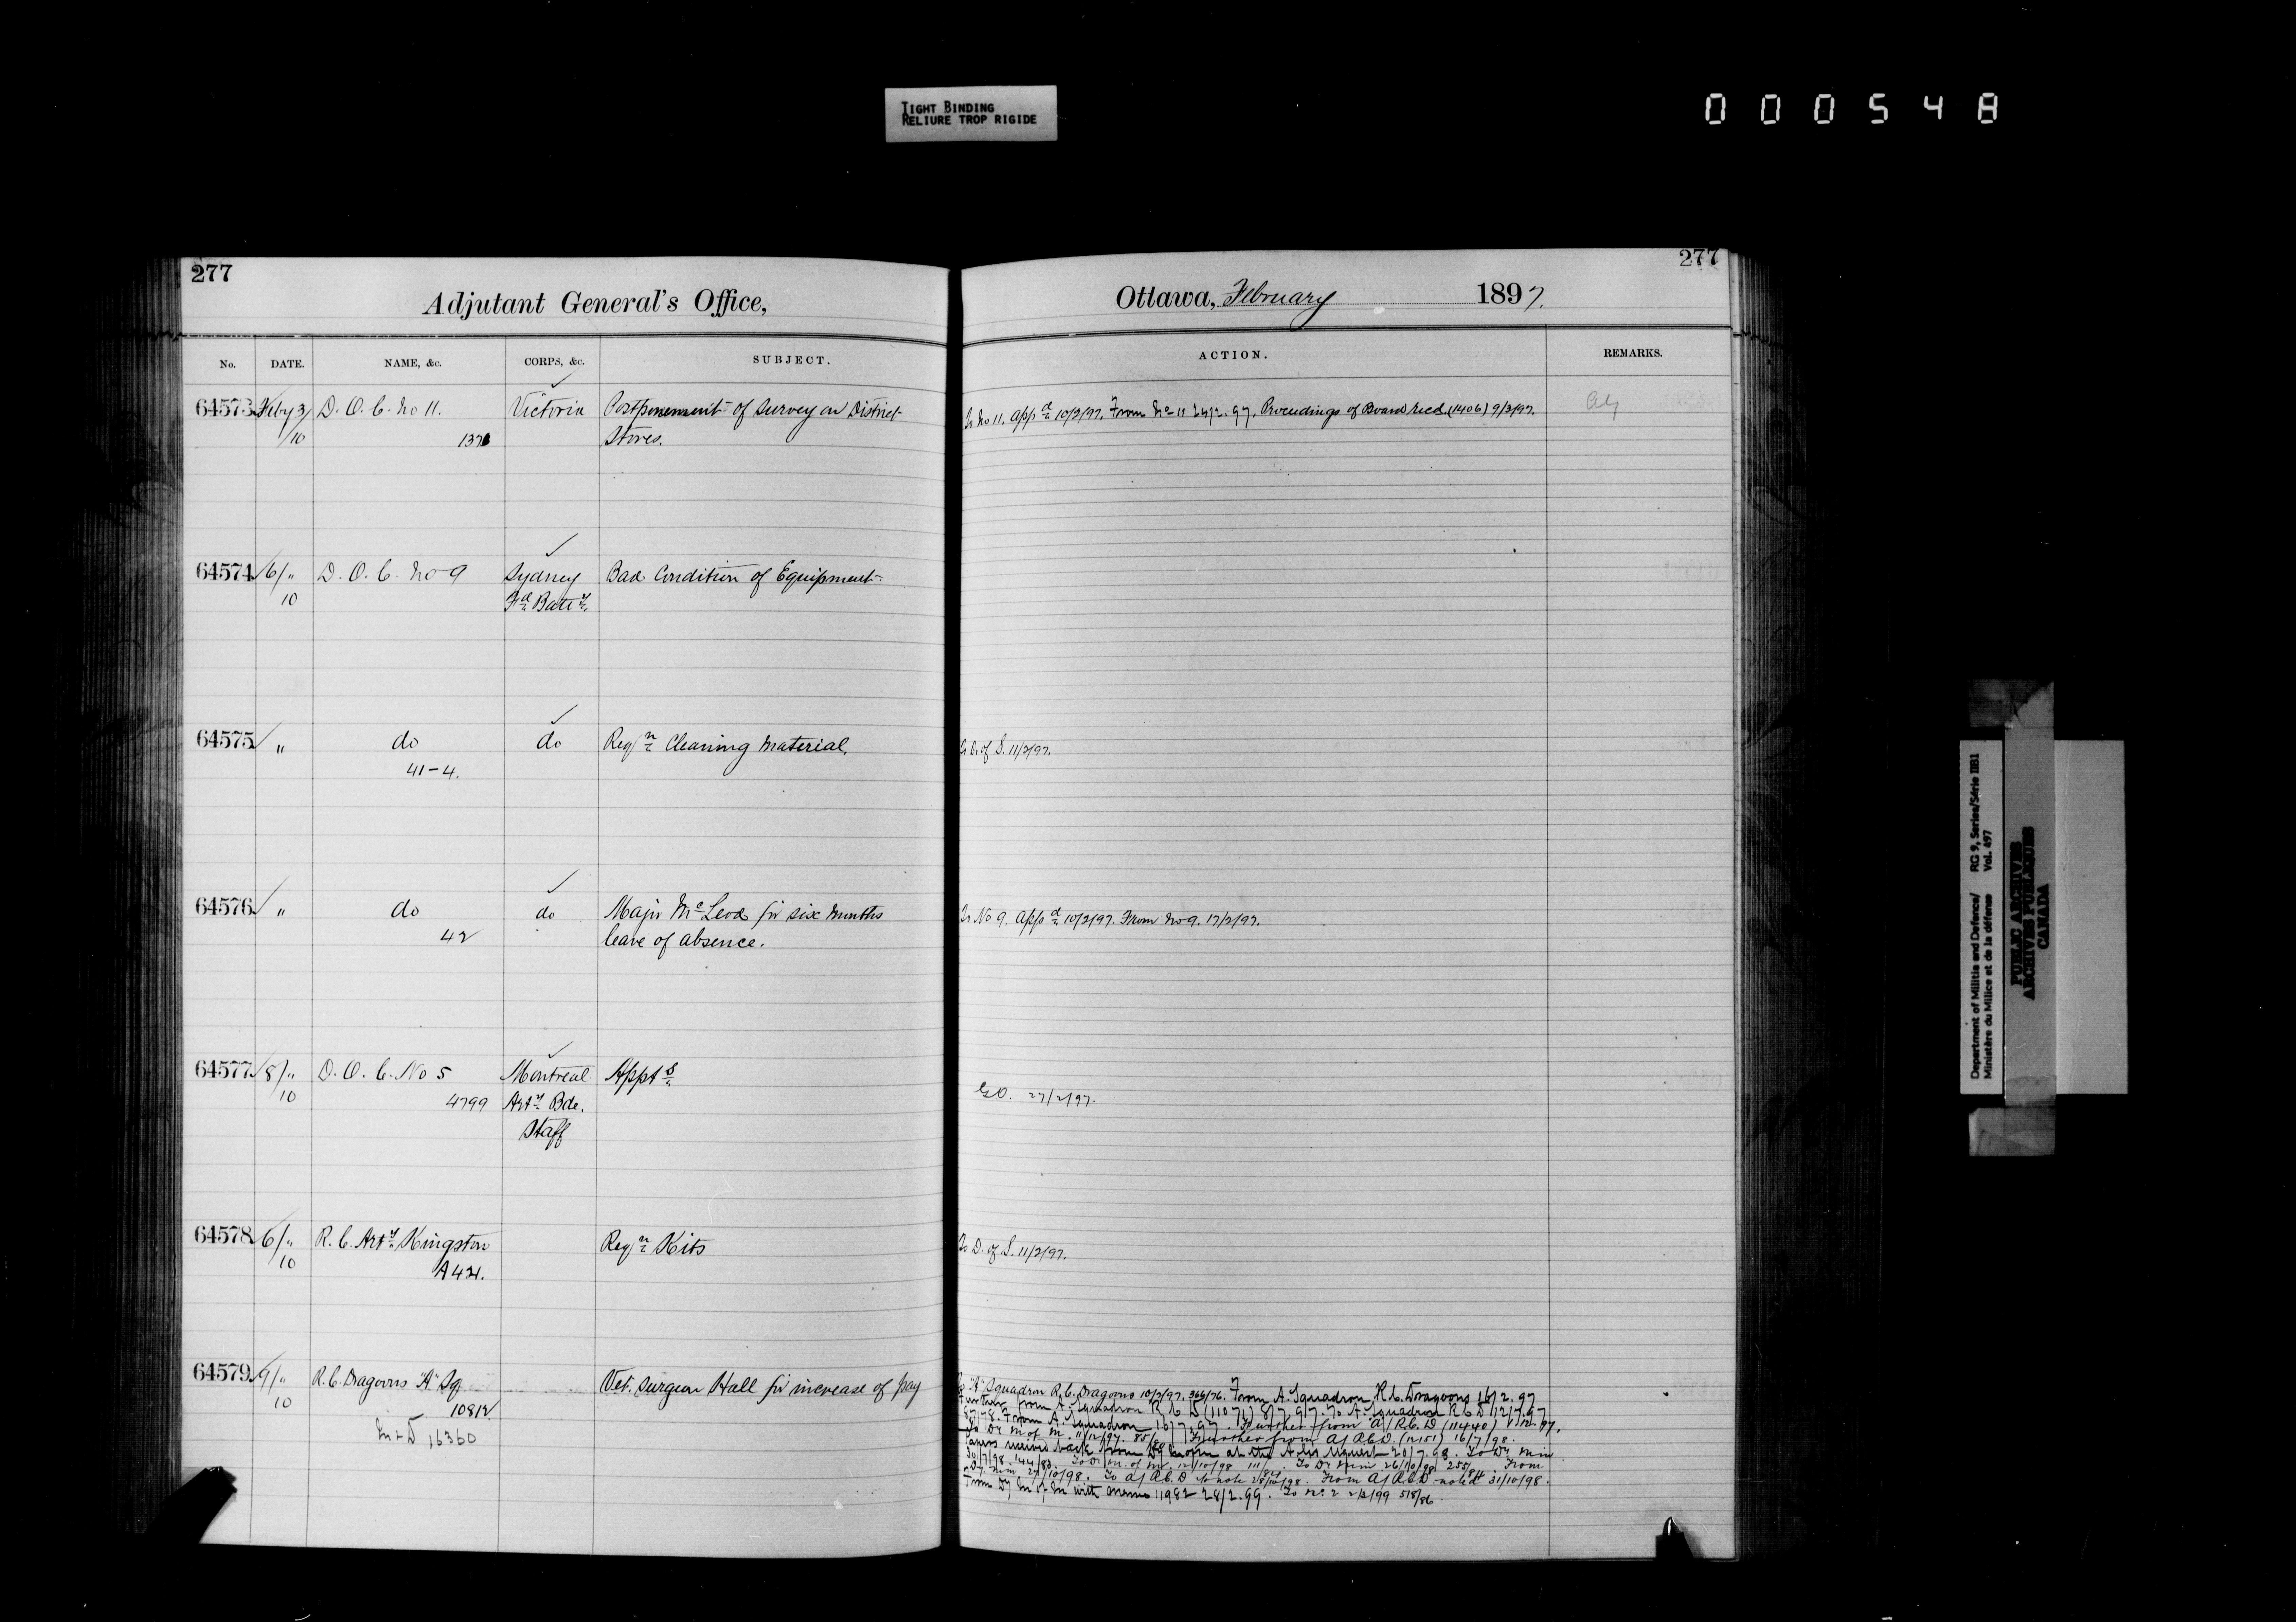 TIGHT BINDING
RELIURE TROP RIGIDE
000548
277
Adjutant General's Office,
277
Ottawa, February 1897.
No. DATE. NAME, &c. CORPS, &c. SUBJECT. ACTION. REMARKS.
64573 Feby 3/10 D. O. C. No 11. Victoria Postponement of Survey on District To No 11. appd 10/2/97. From No 11 24/2.97. Proceedings of Board recd. (1406) 9/3/97.
137 Stores.
64574 6/" D. O. C. No 9 Sydney Bad Condition of Equipment
10 Fd Batty.
64575 " do do Reqn Cleaning Material. To D. of S. 11/2/97.
41-4.
64576 " do do Major McLeod for six months To No 9. appd 10/2/97. From No 9. 17/2/97.
42 leave of absence.
64577 8/" D. O. C. No 5 Montreal Appts
10 4799 Arty Bde. G.O. 27/2/97.
Staff
64578 6/" R. C. Arty Kingston Reqn Kits To D. of S. 11/2/97.
10 A421.
64579 9/" R. C. Dragoons "A" Sq Vet. Surgeon Hall for increase of pay
10 10812
16360
To "A" Squadron R. C. Dragoons 10/2/97. 366/76. From A. Squadron R. C. Dragoons 16/2.97
Further from A. Squadron R C D (11071) 8/7.97. To A. Squadron R C D 12/7.97
From A. Squadron 16/7.97. Further from A/R.C.D (11440) 1/12.97.
To Dy M of M. 11/12/97. 85/ Further from A/ R.C.D. (12151) 16/7/98.
Papers received back from Dy at the request 20/7.98. To Dy Min
30/7/98. 144/83. To Dy M. of M. 12/10/98 To Dy Min 26/10/98 255/84 From
Dy. Min 27/10/98. To A/ R.C.D to note 28/10/98. From A/ R.C.D noted 31/10/98.
From Dy M of M with memo 11982 28/2.99. To No. 2 2/3/99 518/86.
Department of Militia and Defence/ RG 9, Series/Série IIB1
Ministère du Milice et de la défense Vol. 497
PUBLIC ARCHIVES
ARCHIVES PUBLIQUES
CANADA